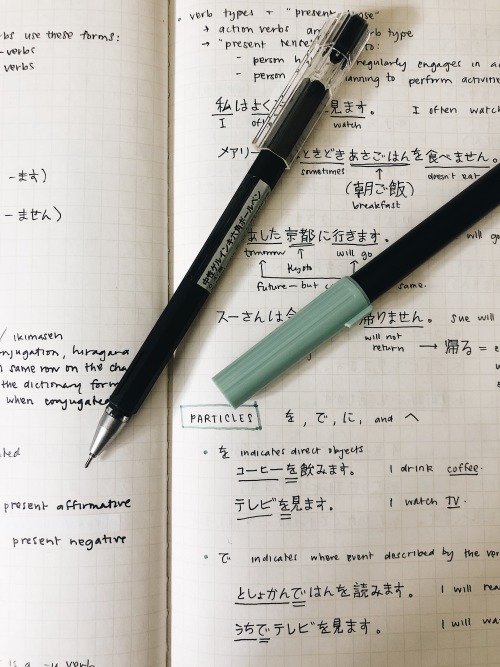 verbs use these forms:
-verbs
verbs
-ます)
-ません)
/ ikimasen
conjugation, hiragana
same row on the
the dictionary form
when conjugated
present affirmative
present negative
is a -u verb
verb types + "present
→ action verbs verb type
→ "present tense" to:
- person regularly engages in
- person planning to perform activities
私はよく 見ます。 I often watch
I watch
メアリー ときどきあさごはんを食べません。
sometimes doesn't eat
(朝ご飯)
breakfast
あした京都に行きます。 will go
tomorrow Kyoto will go
future - but same.
スーさんは 帰りません。 Sue will
will not
return → 帰る =
PARTICLES を, で, に, and へ
• を indicates direct objects
コーヒーを飲みます。 I drink coffee.
テレビを見ます。 I watch TV.
• で indicates where event described by the verb
としょかんではんを読みます。 I will read
うちでテレビを見ます。 I will
中性ゲルインキ六角ボールペン